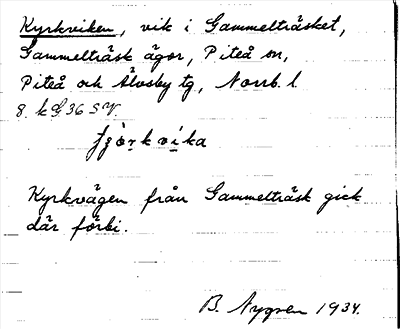 Kyrkviken, vik i Gammelträsket,
Gammelträsk ägor, Piteå sn,
Piteå och Älvsby tg, Norrb. l.
8. k S 36 SV.
Kyrkvägen från Gammelträsk gick
där förbi.
B. Nygren 1934.